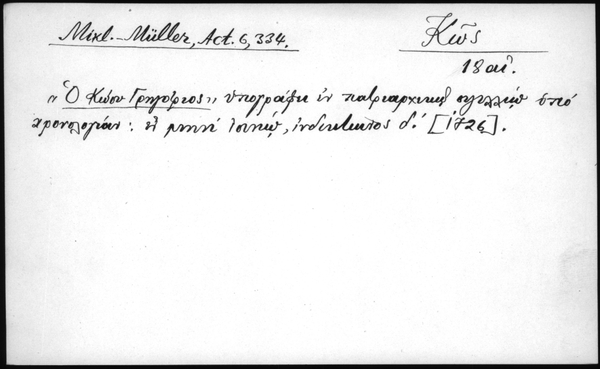 Mikl.-Müller, Act. 6, 334.
Κῶς
18 αἰ.
„Ὁ Κώου Γρηγόριος„ ὑπογράφει ἐν πατριαρχικῷ σιγιλλίῳ ὑπὸ
χρονολογίαν: ἐν μηνὶ ἰουνίῳ, ἰνδικτιῶνος δ.' [1726].